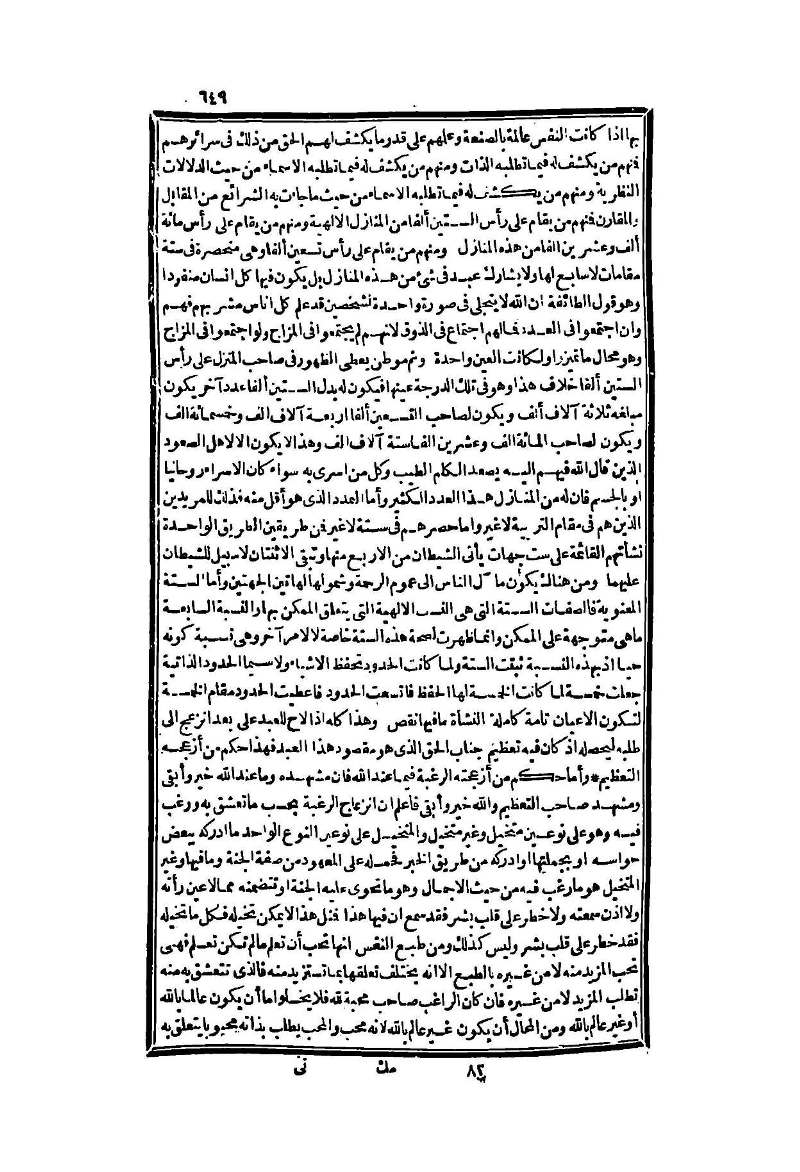 ٦٤٩
بها اذا كانت النفس عالمة بالصنعة وعلمهم على قدر ما يكشف لهم الحق من ذلك فى سرائرهم
فنهم من يكشف له فيما تطلبه الذات ومنهم من يكشف له فيما تطلبه الاسماء من حيث الدلالات
النظرية ومنهم من يكشف له فيما تطلبه الاسماء من حيث ماجات به الشرائع من المقابل
والمقارن فنهم من يقام على رأس الستين ألفا من المنازل الالهية ومنهم من يقام على رأس مائة
ألف وعشرين الفا من هذه المنازل ومنهم من يقام على رأس تسعين ألفا وهى منحصرة فى ستة
مقامات لاسابع لها ولا يشارك عبد فى شئ من هذه المنازل بل يكون فيها كل انسان منفردا
وهو قول الطائفة ان الله لا يتجلى فى صورة واحدة لشخصين قد علم كل اناس مشربهم فهم
وان اجتمعوا فى العدد فمالهم اجتماع فى الذوق لانهم لم يجتمعوا فى المزاج ولو اجتمعوا فى المزاج
وهو محال ماتميزوا ولكانت العين واحدة وثم موطن يعطى الظهور فى صاحب المنزل على رأس
الستين ألفا خلاف هذا وهو فى تلك الدرجة عينها فيكون له بدل الستين ألفا عدد آخر يكون
مبلغه ثلاثة آلاف ألف ويكون لصاحب التسعين ألفا اربعة آلاف الف وخمسمائة الف
ويكون لصاحب المائة الف وعشرين الفا ستة آلاف الف وهذا لايكون الالاهل الصعود
الذين قال الله فيهم اليه يصعد الكلم الطيب وكل من اسرى به سواء كان الاسراء روحانيا
او بالجسم فان له من المنازل هذا العدد الكثير وأما العدد الذى هو أقل منه فذلك للمريدين
الذين هم فى مقام التربية لاغير واما حصرهم فى ستة لاغير فن طريقين الطريق الواحدة
نشأتهم القائمة على ست جهات يأتى الشيطان من الاربع منها وتبقى الاثنتان لاسبيل للشيطان
عليهما ومن هنالك يكون مآل الناس الى عموم الرحمة وشمولها لهاتين الجهتين وأما الستة
المعنوية فالصفات الستة التى هى النسب الالهية التى يتعلق الممكن بها والنسبة السابعة
ماهى متوجهة على الممكن وانما ظهرت لصحة هذه الستة خاصة لالامر آخر وهى نسبة كونه
حيا اذ بهذه النسبة ثبتت الستة ولما كانت الحدود تحفظ الاشياء ولاسيما الحدود الذاتية
جعلت خمسة لما كانت الخمسة لها الحفظ فاتسعت الحدود فاعطيت الحدود مقام الخمسة
لتكون الاعيان تامة كاملة النشأة مافيها نقص وهذا كله اذا لاح للعبد على بعد انزعج الى
طلبه ليحصله اذ كان فيه تعظيم جناب الحق الذى هو مقصود هذا العبد فهذا حكم من أزعجه
التعظيم * وأما حكم من أزعجته الرغبة فيما عند الله فان مشهده وما عند الله خير وأبقى
ومشهد صاحب التعظيم والله خير وأبقى فاعلم ان انزعاج الرغبة بحسب ما تعشق به ورغب
فيه وهو على نوعين متخيل وغير متخيل والمتخيل على نوعين النوع الواحد ما ادركه ببعض
حواسه او بجملتها او ادركه من طريق الخبر فحمله على المعهود من صفة الجنة ومافيها وغير
المتخيل هو مارغب فيه من حيث الاجمال وهو ماتحوى عليه الجنة او تتضمنه ممالاعين رأته
ولا اذن سمعته ولاخطر على قلب بشر فقد سمع ان فيها هذا فمثل هذا لايمكن تخيله فكل ماتخيله
فقد خطر على قلب بشر وليس كذلك ومن طبع النفس انها تحب أن تعلم مالم تكن تعلم فهى
تحب المزيد منه لامن غيره بالطبع الا انه يختلف تعلقها بما تستزيد منه فالذى تتعشق به منه
تطلب المزيد لامن غيره فان كان الراغب صاحب محبة لله فلا يخلو اما أن يكون عالما بالله
أو غير عالم بالله ومن المحال أن يكون غير عالم بالله لانه محب والمحب يطلب بذاته محبوبا يتعلق به
٨٢ مك نى